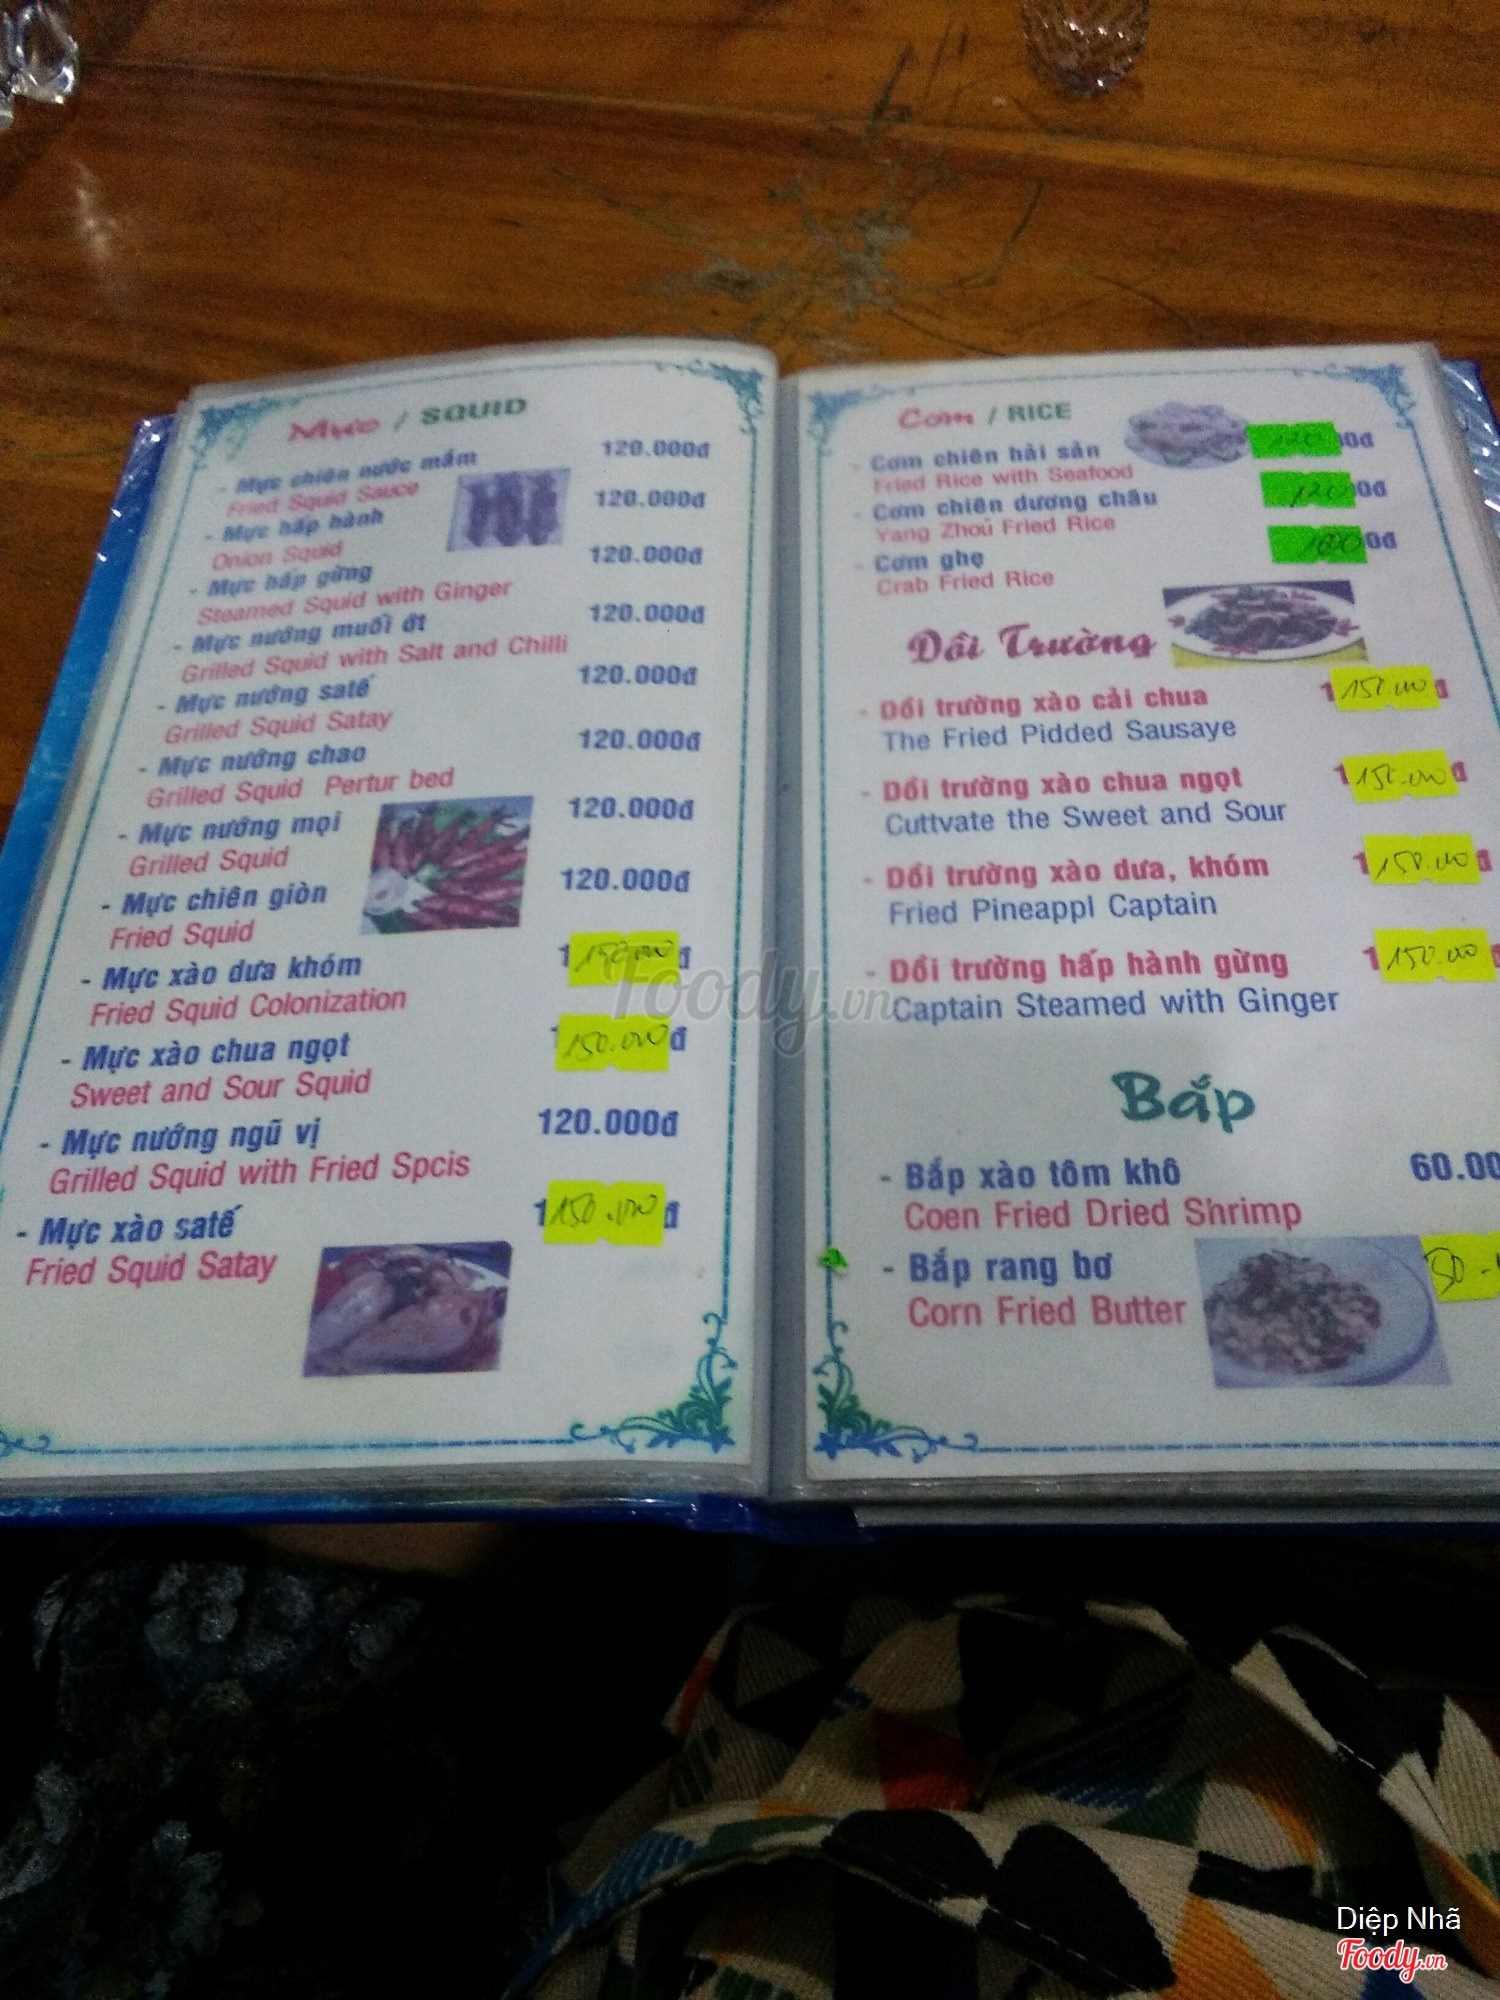 Mực / SQUID
- Mực chiên nước mắm 120.000đ
Fried Squid Sauce
- Mực hấp hành 120.000đ
Onion Squid
- Mực hấp gừng 120.000đ
Steamed Squid with Ginger
- Mực nướng muối ớt 120.000đ
Grilled Squid with Salt and Chilli
- Mực nướng satế 120.000đ
Grilled Squid Satay
- Mực nướng chao 120.000đ
Grilled Squid Pertur bed
- Mực nướng mọi 120.000đ
Grilled Squid
- Mực chiên giòn 120.000đ
Fried Squid
- Mực xào dưa khóm 1 150.000 đ
Fried Squid Colonization
- Mực xào chua ngọt 150.000 đ
Sweet and Sour Squid
- Mực nướng ngũ vị 120.000đ
Grilled Squid with Fried Spcis
- Mực xào satế 1 150.000 đ
Fried Squid Satay
Cơm / RICE
- Cơm chiên hải sản 120 00đ
Fried Rice with Seafood
- Cơm chiên dương châu 120 0đ
Yang Zhou Fried Rice
- Cơm ghẹ 0đ
Crab Fried Rice
Dồi Trường
- Dồi trường xào cải chua 1 150.000 đ
The Fried Pidded Sausaye
- Dồi trường xào chua ngọt 1 150.000 đ
Cuttvate the Sweet and Sour
- Dồi trường xào dưa, khóm 1 150.000 đ
Fried Pineappl Captain
- Dồi trường hấp hành gừng 1 150.000
Captain Steamed with Ginger
Bắp
- Bắp xào tôm khô 60.00
Coen Fried Dried Shrimp
- Bắp rang bơ 50 -
Corn Fried Butter
Foody.vn
Diệp Nhã
Foody.vn